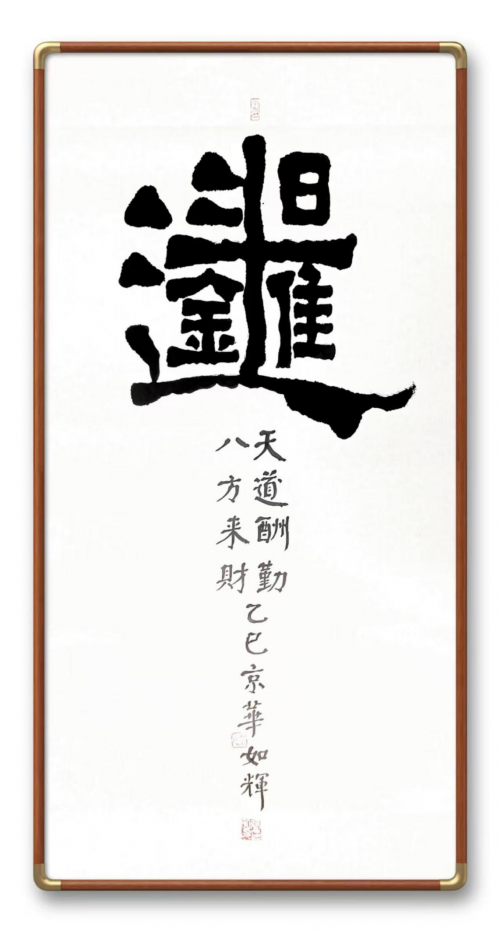 日進斗金
天道酬勤
八方来財
乙巳京華如輝